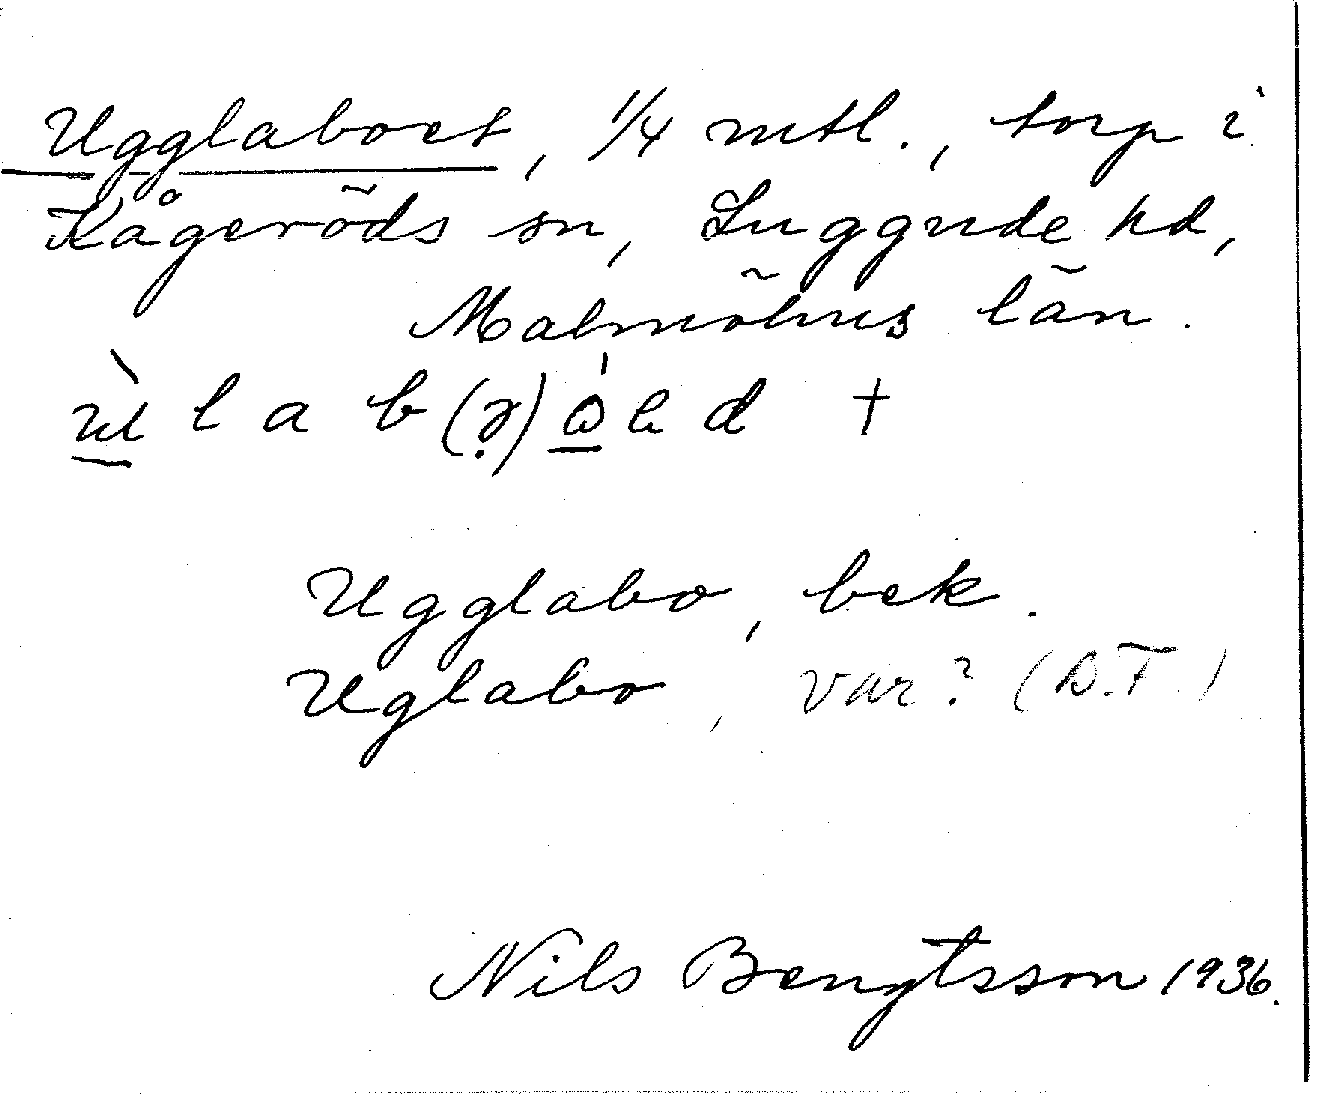 Ugglaboet, 1/4 mtl., torp i
Kågeröds sn, Luggude hd,
Malmöhus län.
l a b d †
Ugglabo, bek.
Uglabo, var? (D.F.)
Nils Bengtsson 1936.